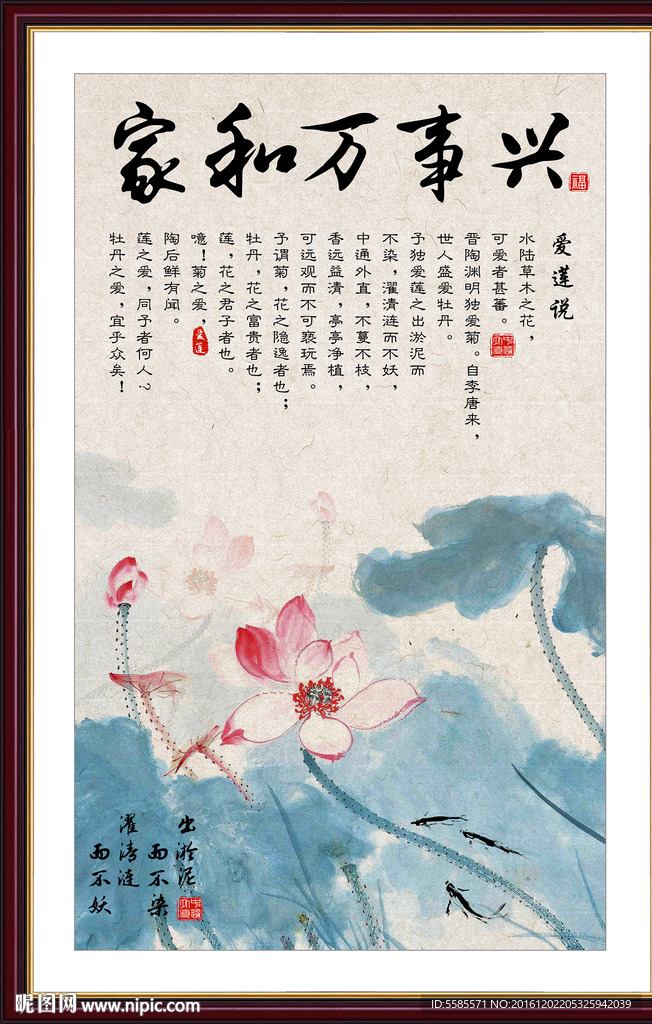 家和万事兴
福
爱莲说
水陆草木之花，
可爱者甚蕃。
晋陶渊明独爱菊。自李唐来，
世人盛爱牡丹。
予独爱莲之出淤泥而
不染，濯清涟而不妖，
中通外直，不蔓不枝，
香远益清，亭亭净植，
可远观而不可亵玩焉。
予谓菊，花之隐逸者也；
牡丹，花之富贵者也；
莲，花之君子者也。
噫！菊之爱，
陶后鲜有闻。
莲之爱，同予者何人？
牡丹之爱，宜乎众矣！
爱莲
出淤泥
而不染
濯清涟
而不妖
昵图网 www.nipic.com
ID:5585571 NO:20161202205325942039